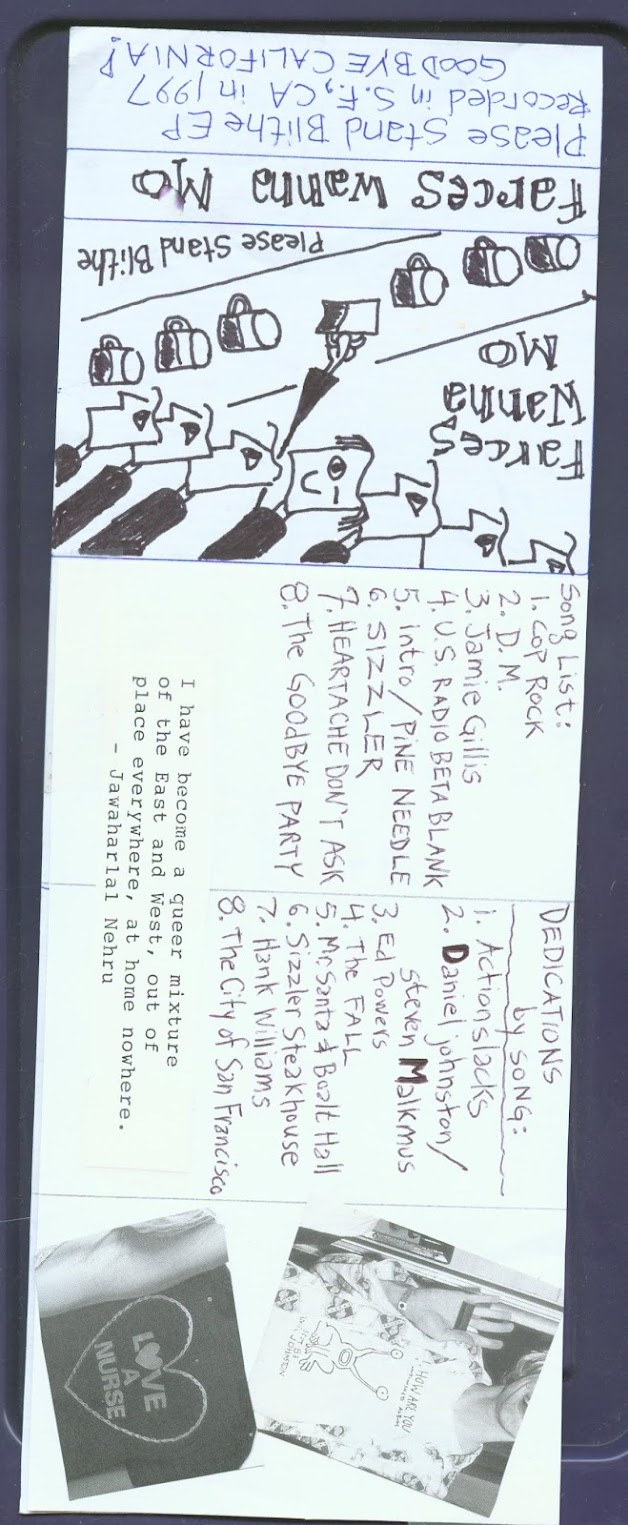 Please Stand Blithe EP
Recorded in S.F., CA in 1997
GOODBYE CALIFORNIA!
Farces Wanna Mo
Please Stand Blithe
Farces
Wanna
Mo
Song List:
1. COP ROCK
2. D.M.
3. Jamie Gillis
4. U.S. RADIO BETA BLANK
5. intro/PINE NEEDLE
6. SIZZLER
7. HEARTACHE DON'T ASK
8. The GOODBYE PARTY
I have become a queer mixture
of the East and West, out of
place everywhere, at home nowhere.
- Jawaharlal Nehru
DEDICATIONS
by SONG:
1. Actionslacks
2. Daniel johnston/
steven Malkmus
3. Ed Powers
4. The FALL
5. Mr. Santa & Boalt Hall
6. Sizzler Steakhouse
7. Hank Williams
8. The City of San Francisco
LOVE
A
NURSE
HI, HOW ARE YOU
JOHNSTON